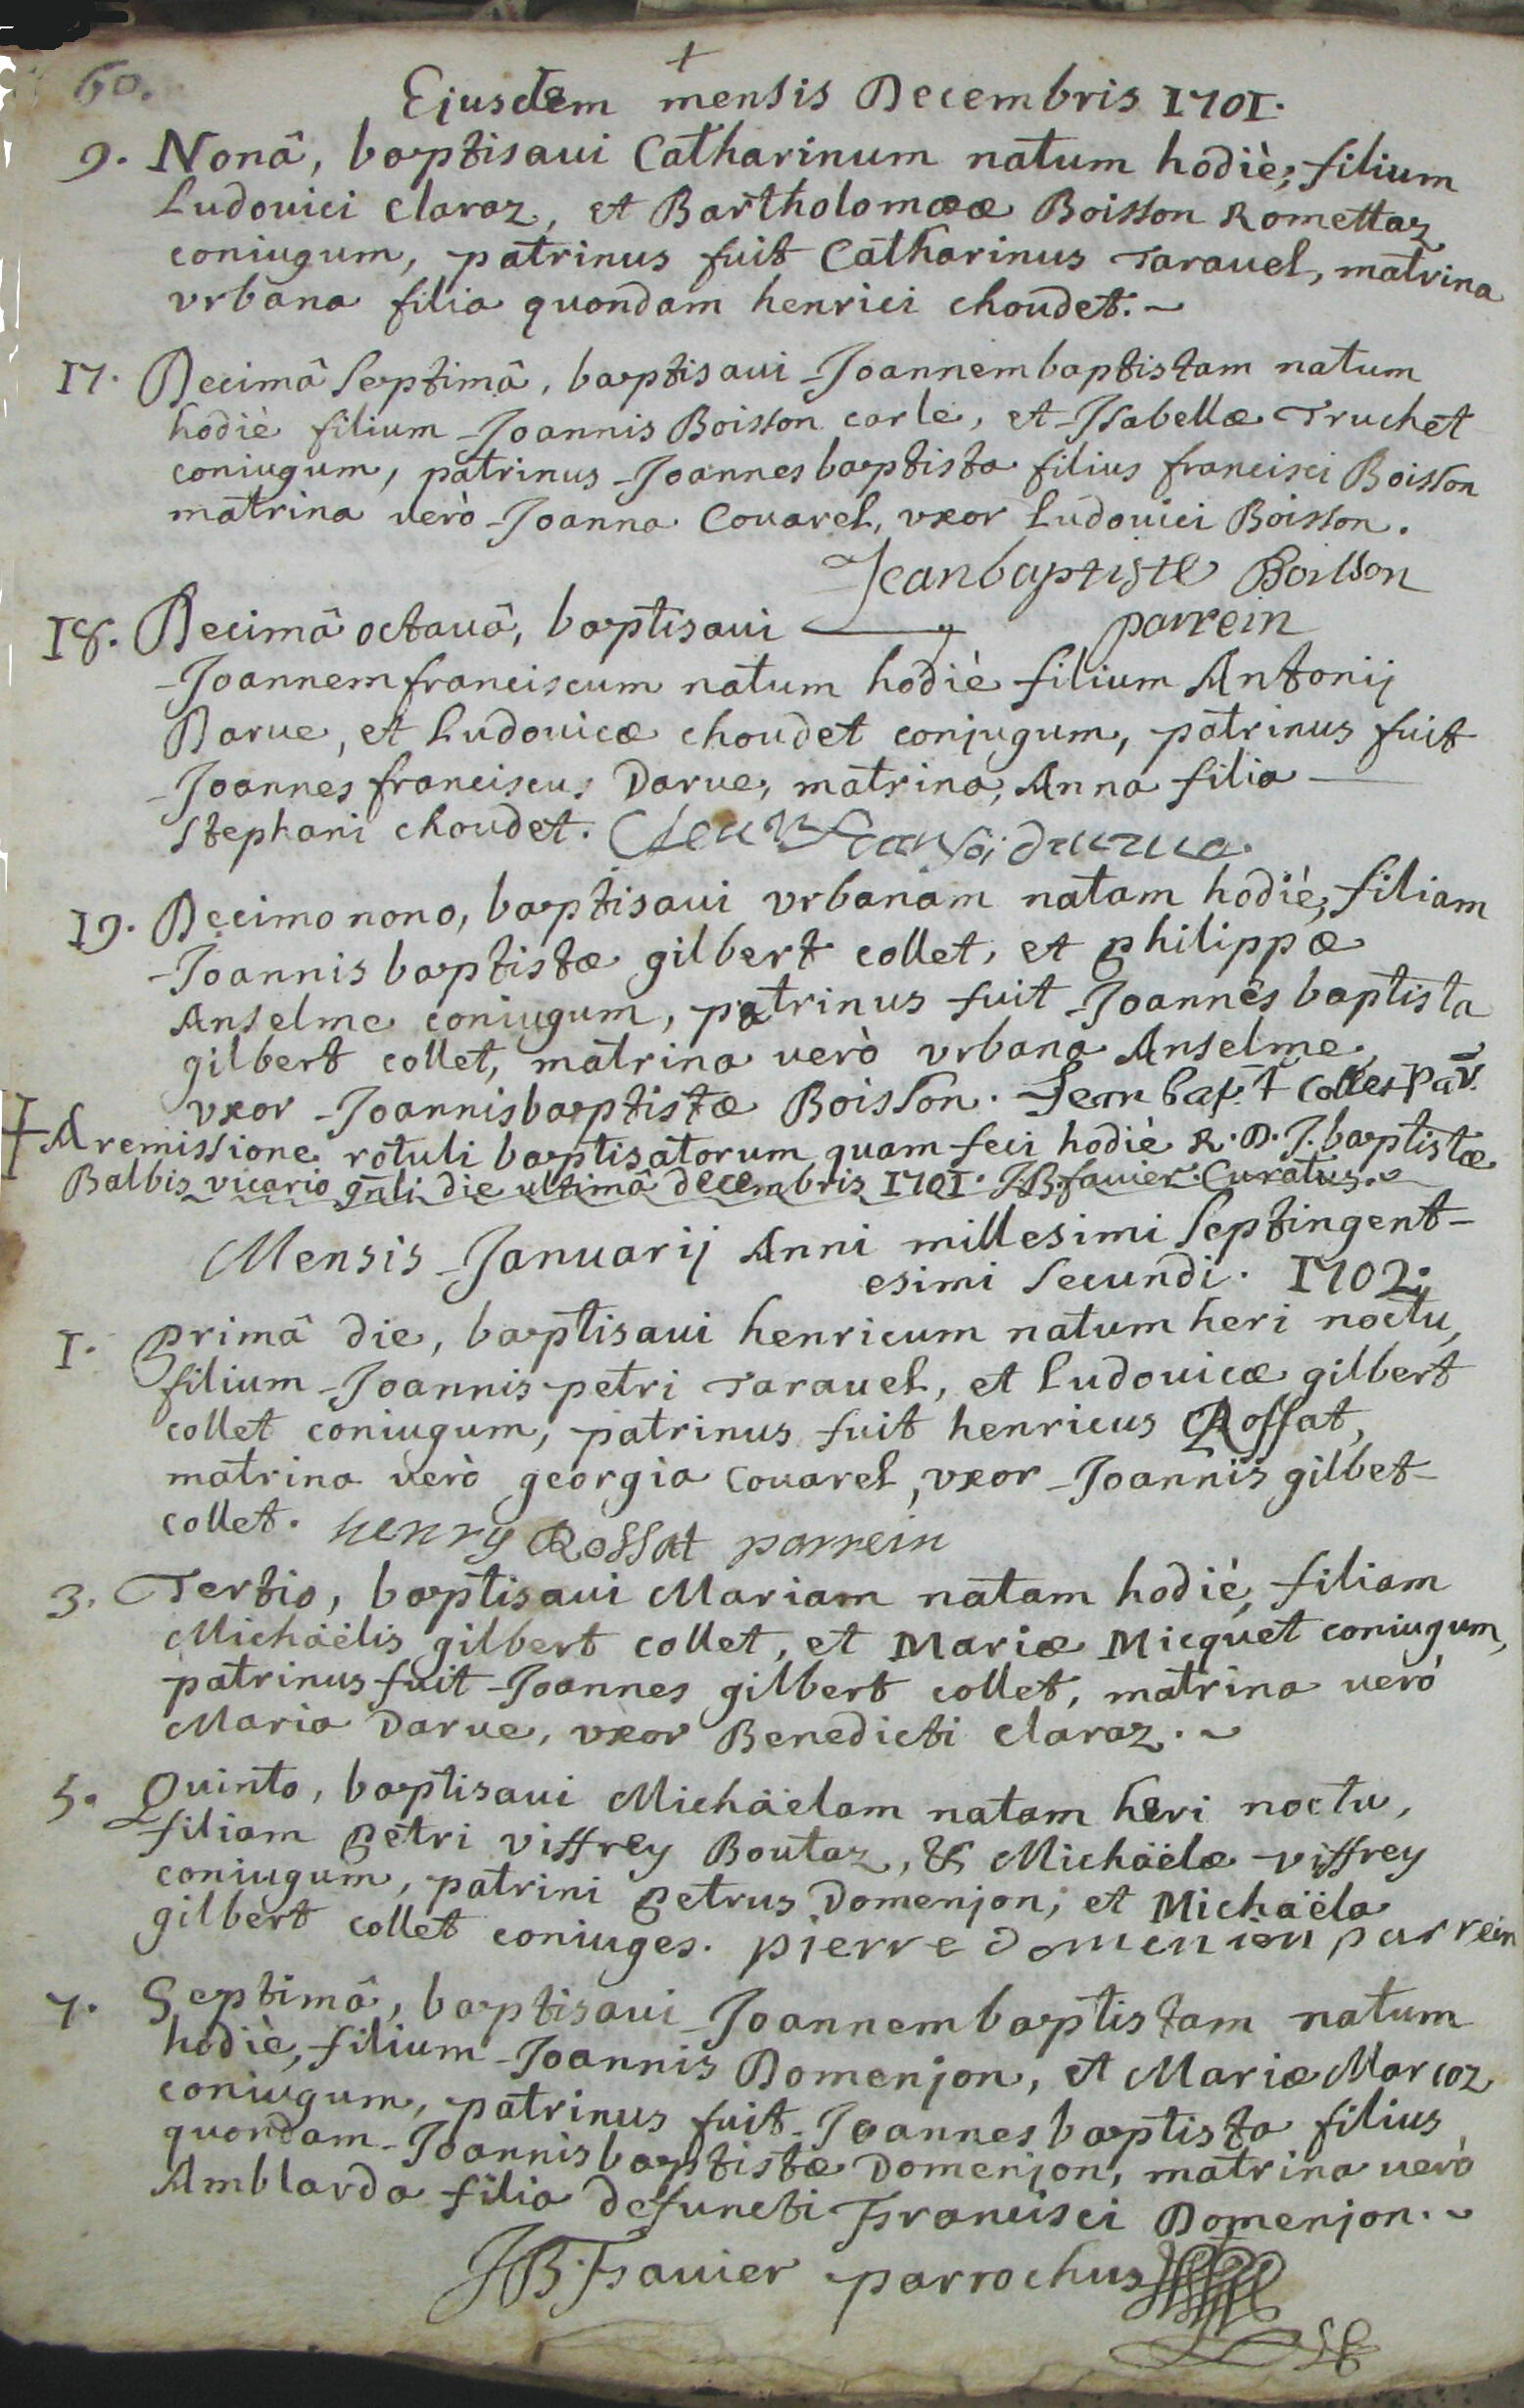 60.
+
Ejusdem mensis Decembris 1701.
9. Nonâ, baptisaui Catharinum natum hodiè, filium
Ludouici claraz, et Bartholomææ Boisson Romettaz
coniugum, patrinus fuit Catharinus Tarauel, matrina
vrbana filia quondam henrici choudet.
17. Decimâ Septimâ, baptisaui Joannembaptistam natum
hodiè filium Joannis Boisson carle, et Isabellæ Truchet
coniugum, patrinus Joannesbaptista filius francisci Boisson
matrina uerò Joanna Couarel, vxor Ludouici Boisson.
Jeanbaptiste Boisson
parrein
18. Decimâ octauâ, baptisaui
Joannemfranciscum natum hodiè filium Antonij
Darue, et Ludouicæ choudet conjugum, patrinus fuit
Joannesfranciscus Darue, matrina, Anna filia
Stephani choudet. Jean Fransoi darue
19. Decimo nono, baptisaui vrbanam natam hodiè, filiam
Joannis baptistæ gilbert collet, et philippæ
Anselme coniugum, patrinus fuit Joannes baptista
gilbert collet, matrina uerò vrbana Anselme,
vxor Joannisbaptistæ Boisson. Jean bap.t Collet par.
+ A remissione rotuli baptisatorum quam feci hodiè R. D. J. baptistæ
Balbis vicario gnli die ultimâ decembris 1701. JB. fauier Curatus.
Mensis Januarij Anni millesimi Septingent-
esimi Secundi. 1702.
1. primâ die, baptisaui henricum natum heri noctu,
filium Joannis petri Tarauel, et Ludouicæ gilbert
collet coniugum, patrinus fuit henricus Rossat,
matrina uerò georgia Couarel, vxor Joannis gilbet
collet. henry Rossat parrein
3. Tertio, baptisaui Mariam natam hodiè, filiam
Michäëlis gilbert collet, et Mariæ Micquet coniugum,
patrinus fuit Joannes gilbert collet, matrina uerò
Maria Darue, vxor Benedicti claraz.
5. Quinto, baptisaui Michäëlam natam heri noctu,
filiam petri viffrey Boutaz, & Michäëlæ viffrey
coniugum, patrini petrus Domenjon, et Michäëla
gilbert collet coniuges. pierre domenion parrein
7. Septimâ, baptisaui Joannembaptistam natum
hodiè, filium Joannis Domenjon, et Mariæ Marcoz
coniugum, patrinus fuit Joannesbaptista filius
quondam Joannisbaptistæ Domenjon, matrina uerò
Amblarda filia defuncti Francisci Domenjon.
JB. Fauier parrochus